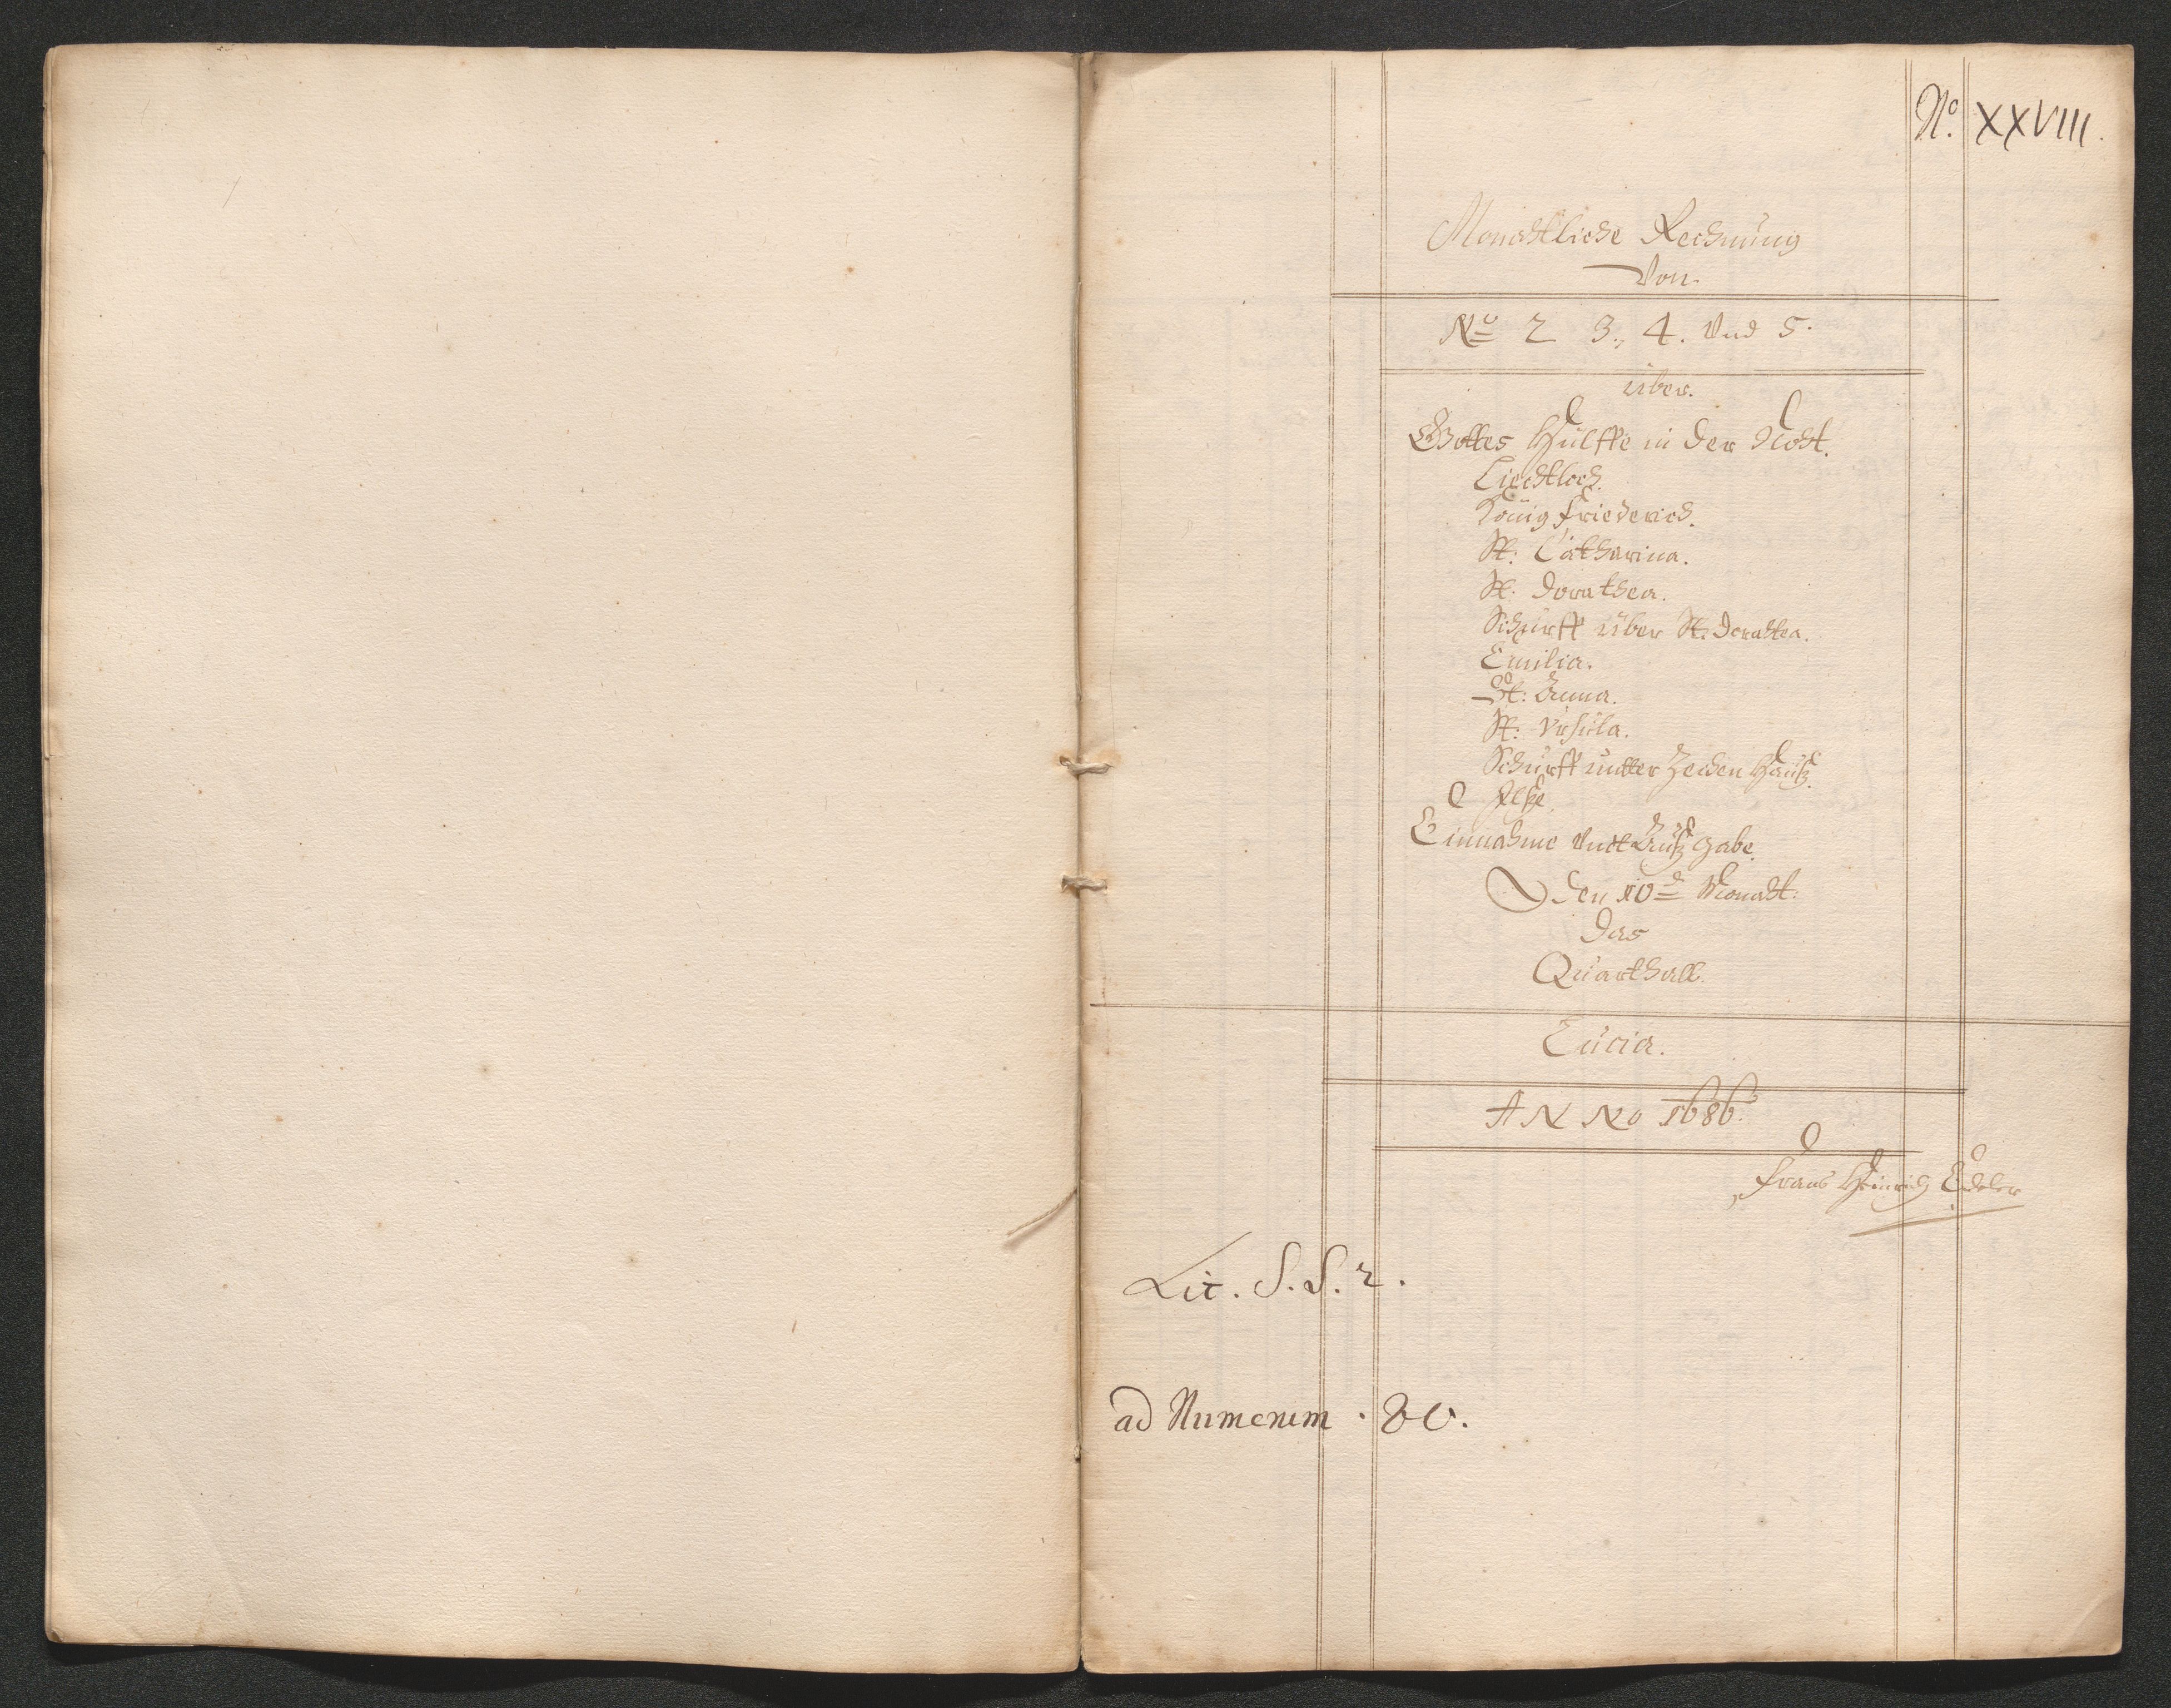 No. XXVIII.
Monahtliche Rechnung
Von.
No 2 3., 4. Vnd 5.
über.
Gottes Hülffe in der Noht.
Liechtloch.
König Friederich.
St: Catharina.
St: Dorathea.
Schürff über St. Dorathea.
Emilia.
St: Anna.
St: Vrsula.
Schürff unter Zechen Hauß.
Ilse.
Einnahme Vndt Auß gabe.
Den 10 Monaht:
Das
Quarthall.
Lucia.
ANNo 1686.
Frans Heinrich Edeler
Lit. S. S. 2.
ad Numerum . 80.